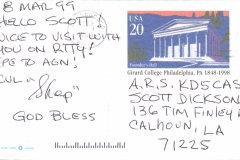 8 MAR 99
HELLO SCOTT!
NICE TO VISIT WITH
YOU ON RTTY!
HOPE TO AGN!
CUL
Skip
GOD BLESS
USA
20
Founder's Hall
Girard College Philadelphia, PA 1848-1998
A.R.S. KD5CAS
SCOTT DICKSON
136 TIM FINLEY
CALHOUN, LA
71225